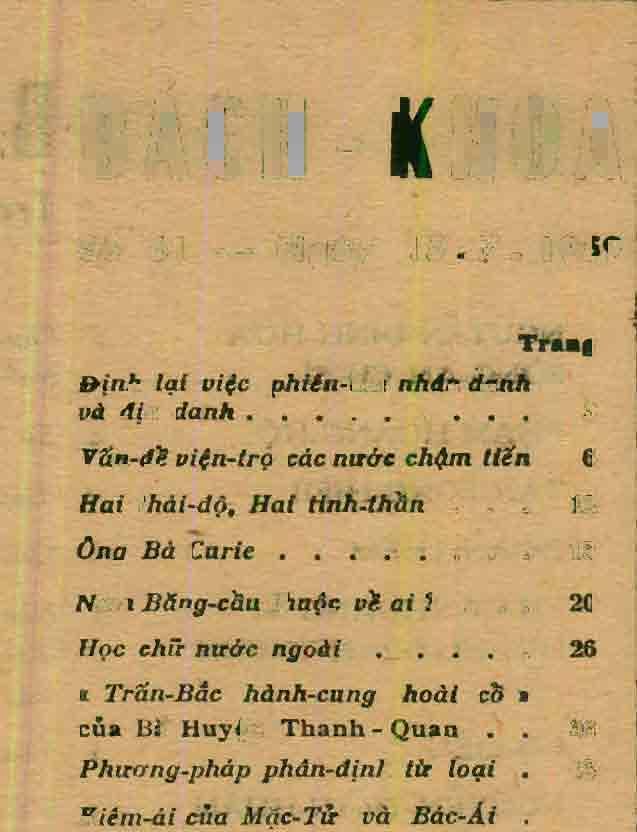 BÁCH - KHOA
Trang
Định lại việc phiên- nhân danh
và địa danh . . . . . . . .
Vấn-đề viện-trợ các nước chậm tiến 6
Hai thái-độ, Hai tinh-thần . . .
Ông Bà Curie . . . . . . . .
Nam Băng-cầu thuộc về ai ? 20
Học chữ nước ngoài . . . . . 26
« Trấn-Bắc hành-cung hoài cổ »
của Bà Huyện Thanh - Quan . .
Phương-pháp phân-định từ loại .
Kiêm-ái của Mặc-Tử và Bác-Ái .